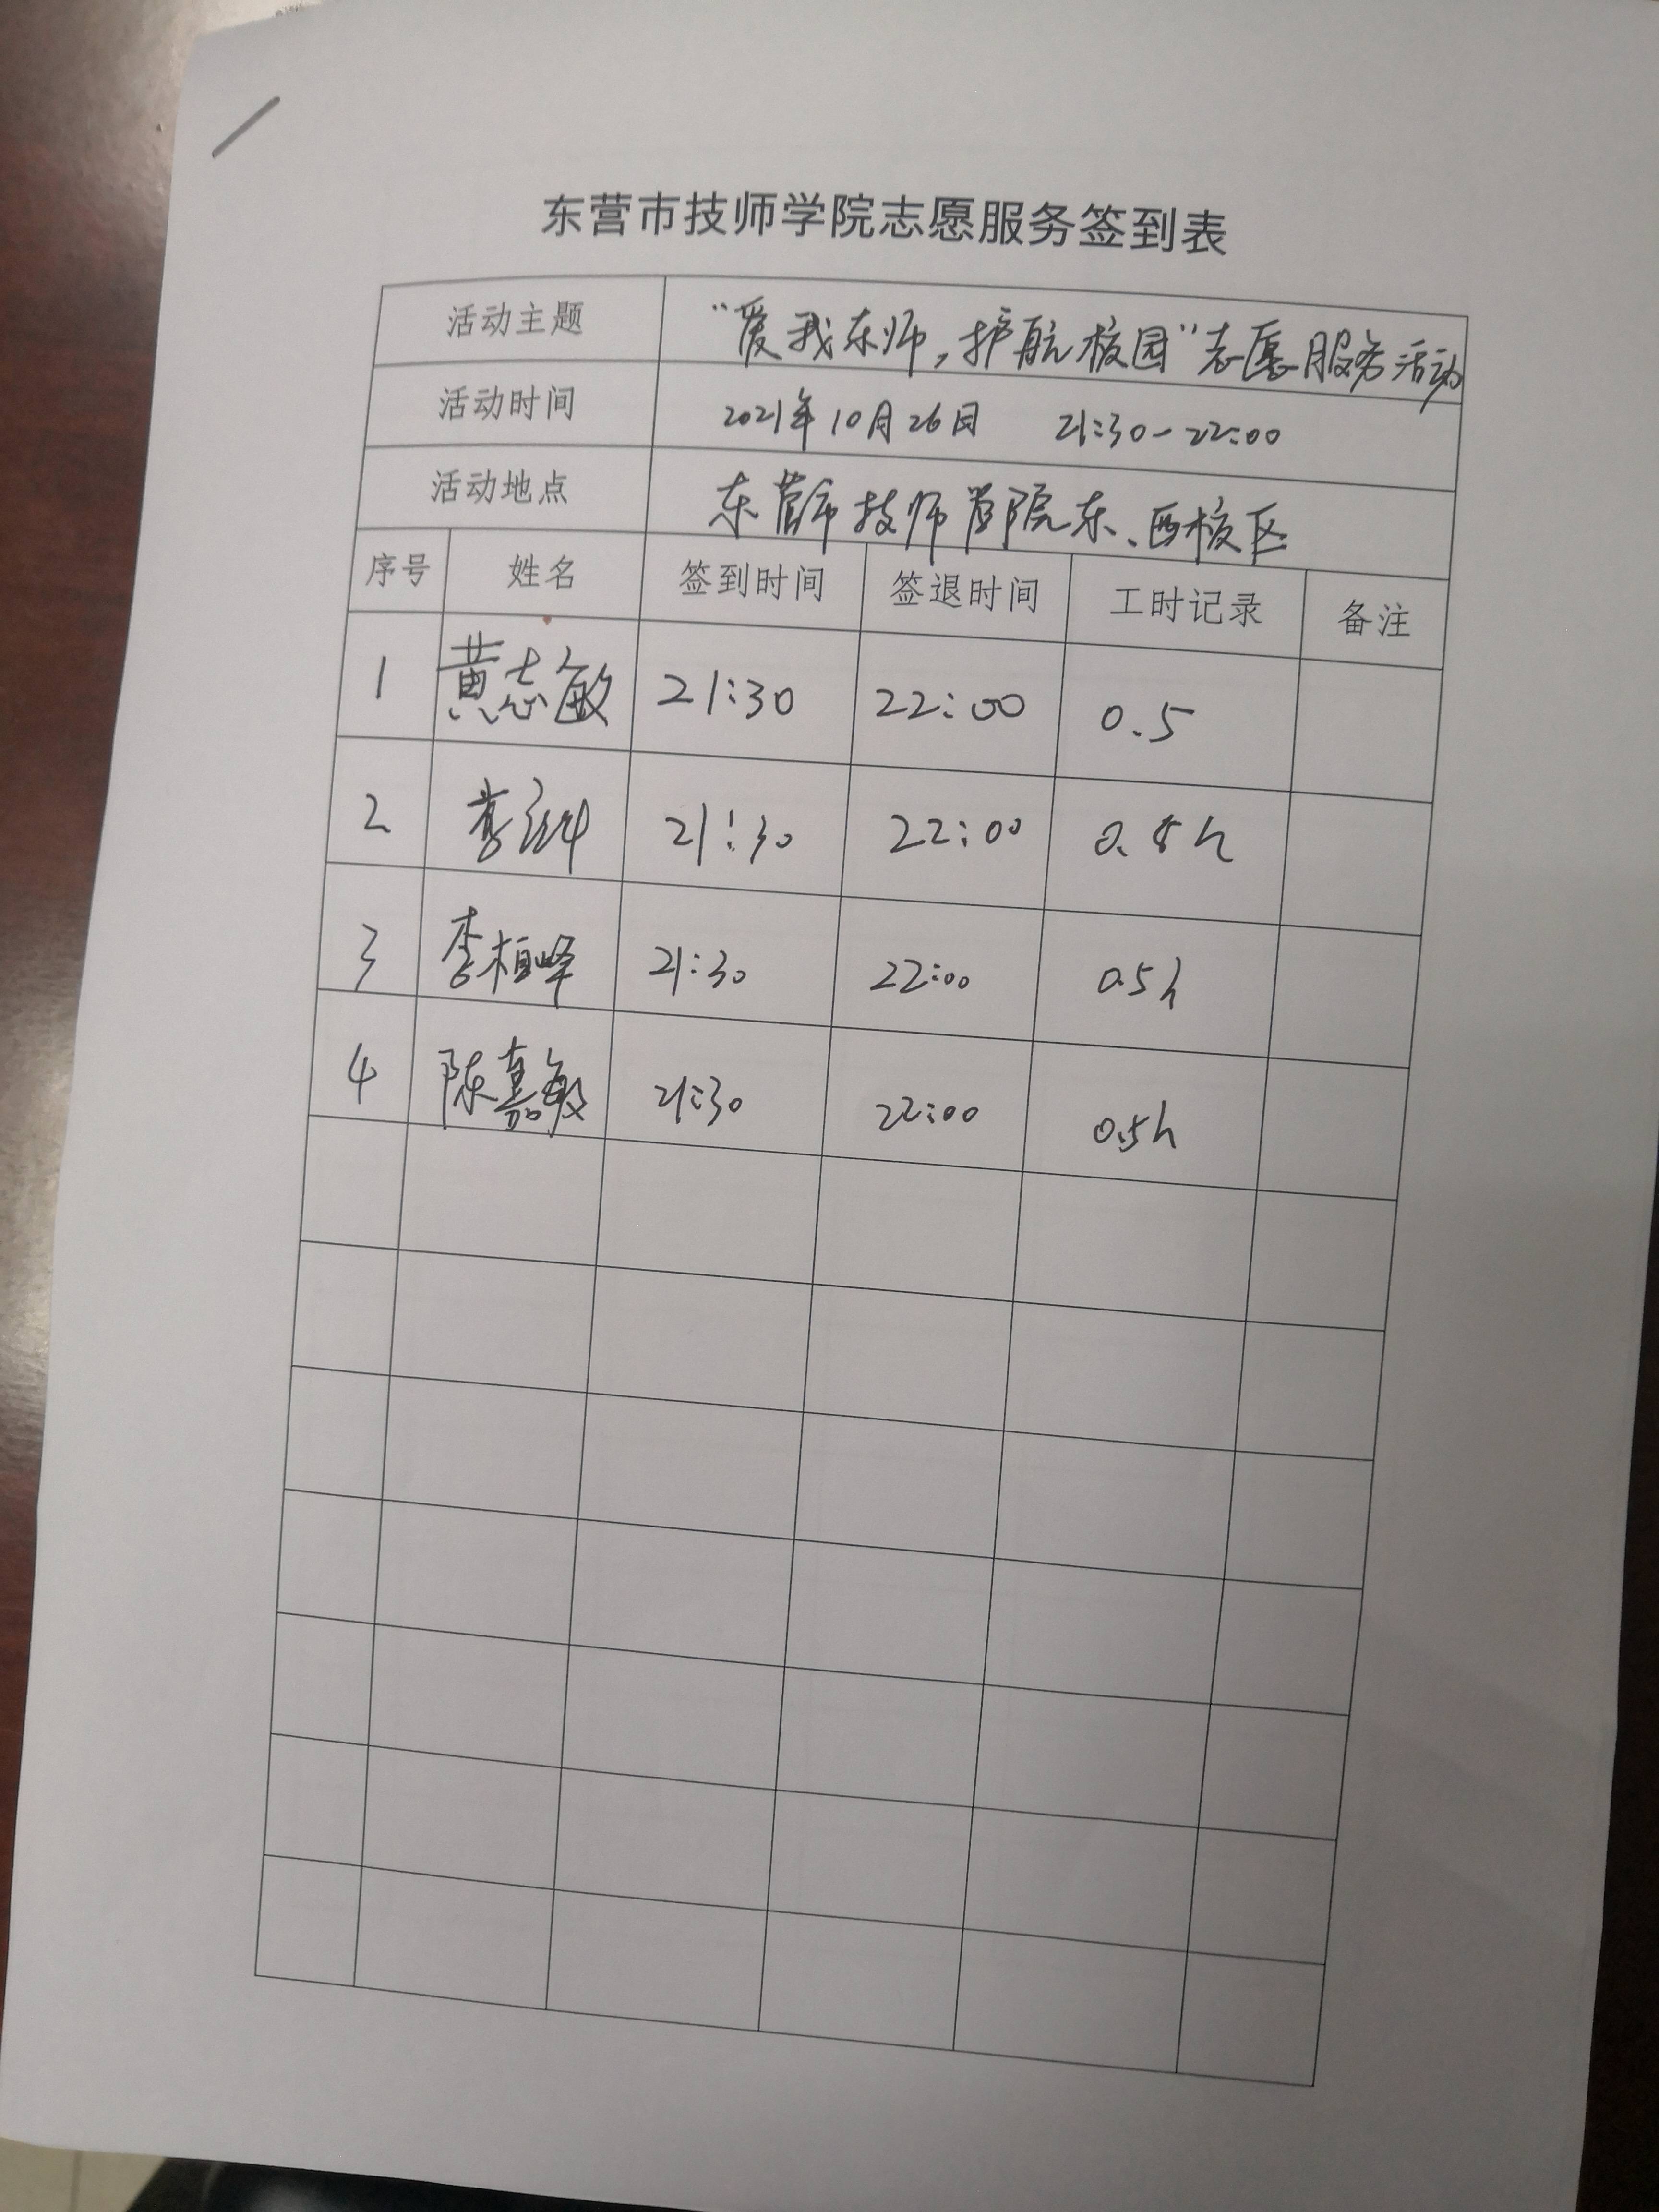 东营市技师学院志愿服务签到表
活动主题 “爱我东师，护航校园”志愿服务活动
活动时间 2021年10月26日 21:30-22:00
活动地点 东营市技师学院东、西校区
序号 姓名 签到时间 签退时间 工时记录 备注
1 黄志敏 21:30 22:00 0.5
2 21:30 22:00 0.5h
3 李桓峰 21:30 22:00 0.5h
4 陈嘉敏 21:30 22:00 0.5h